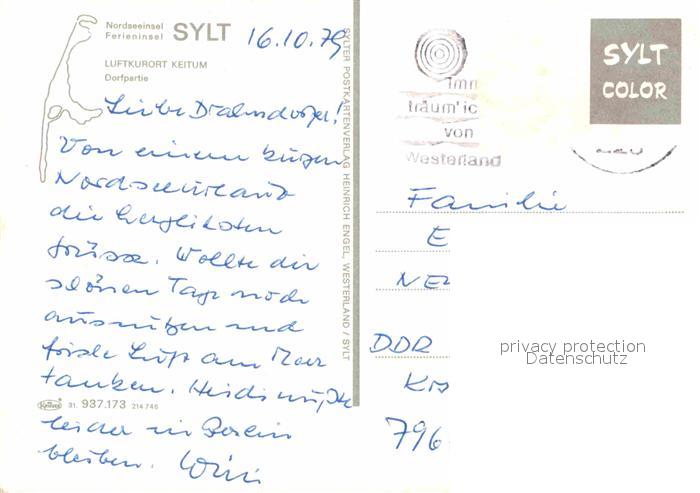 Nordseeinsel
Ferieninsel SYLT
16.10.79
LUFTKURORT KEITUM
Dorfpartie
Liebe Drahnsdorfer!
Von einem kurzen
Nordseeurlaub
die herzlichsten
Grüsse. Wollte die
schönen Tage noch
ausnutzen und
frische Luft am Meer
tanken. Heidi mußte
leider in Berlin
bleiben. Willi
Krüger 31. 937.173 214 746
SYLTER POSTKARTENVERLAG HEINRICH ENGEL, WESTERLAND / SYLT
träum' ic
von
Westerland
SYLT
COLOR
Familie
E
DDR
796
privacy protection
Datenschutz